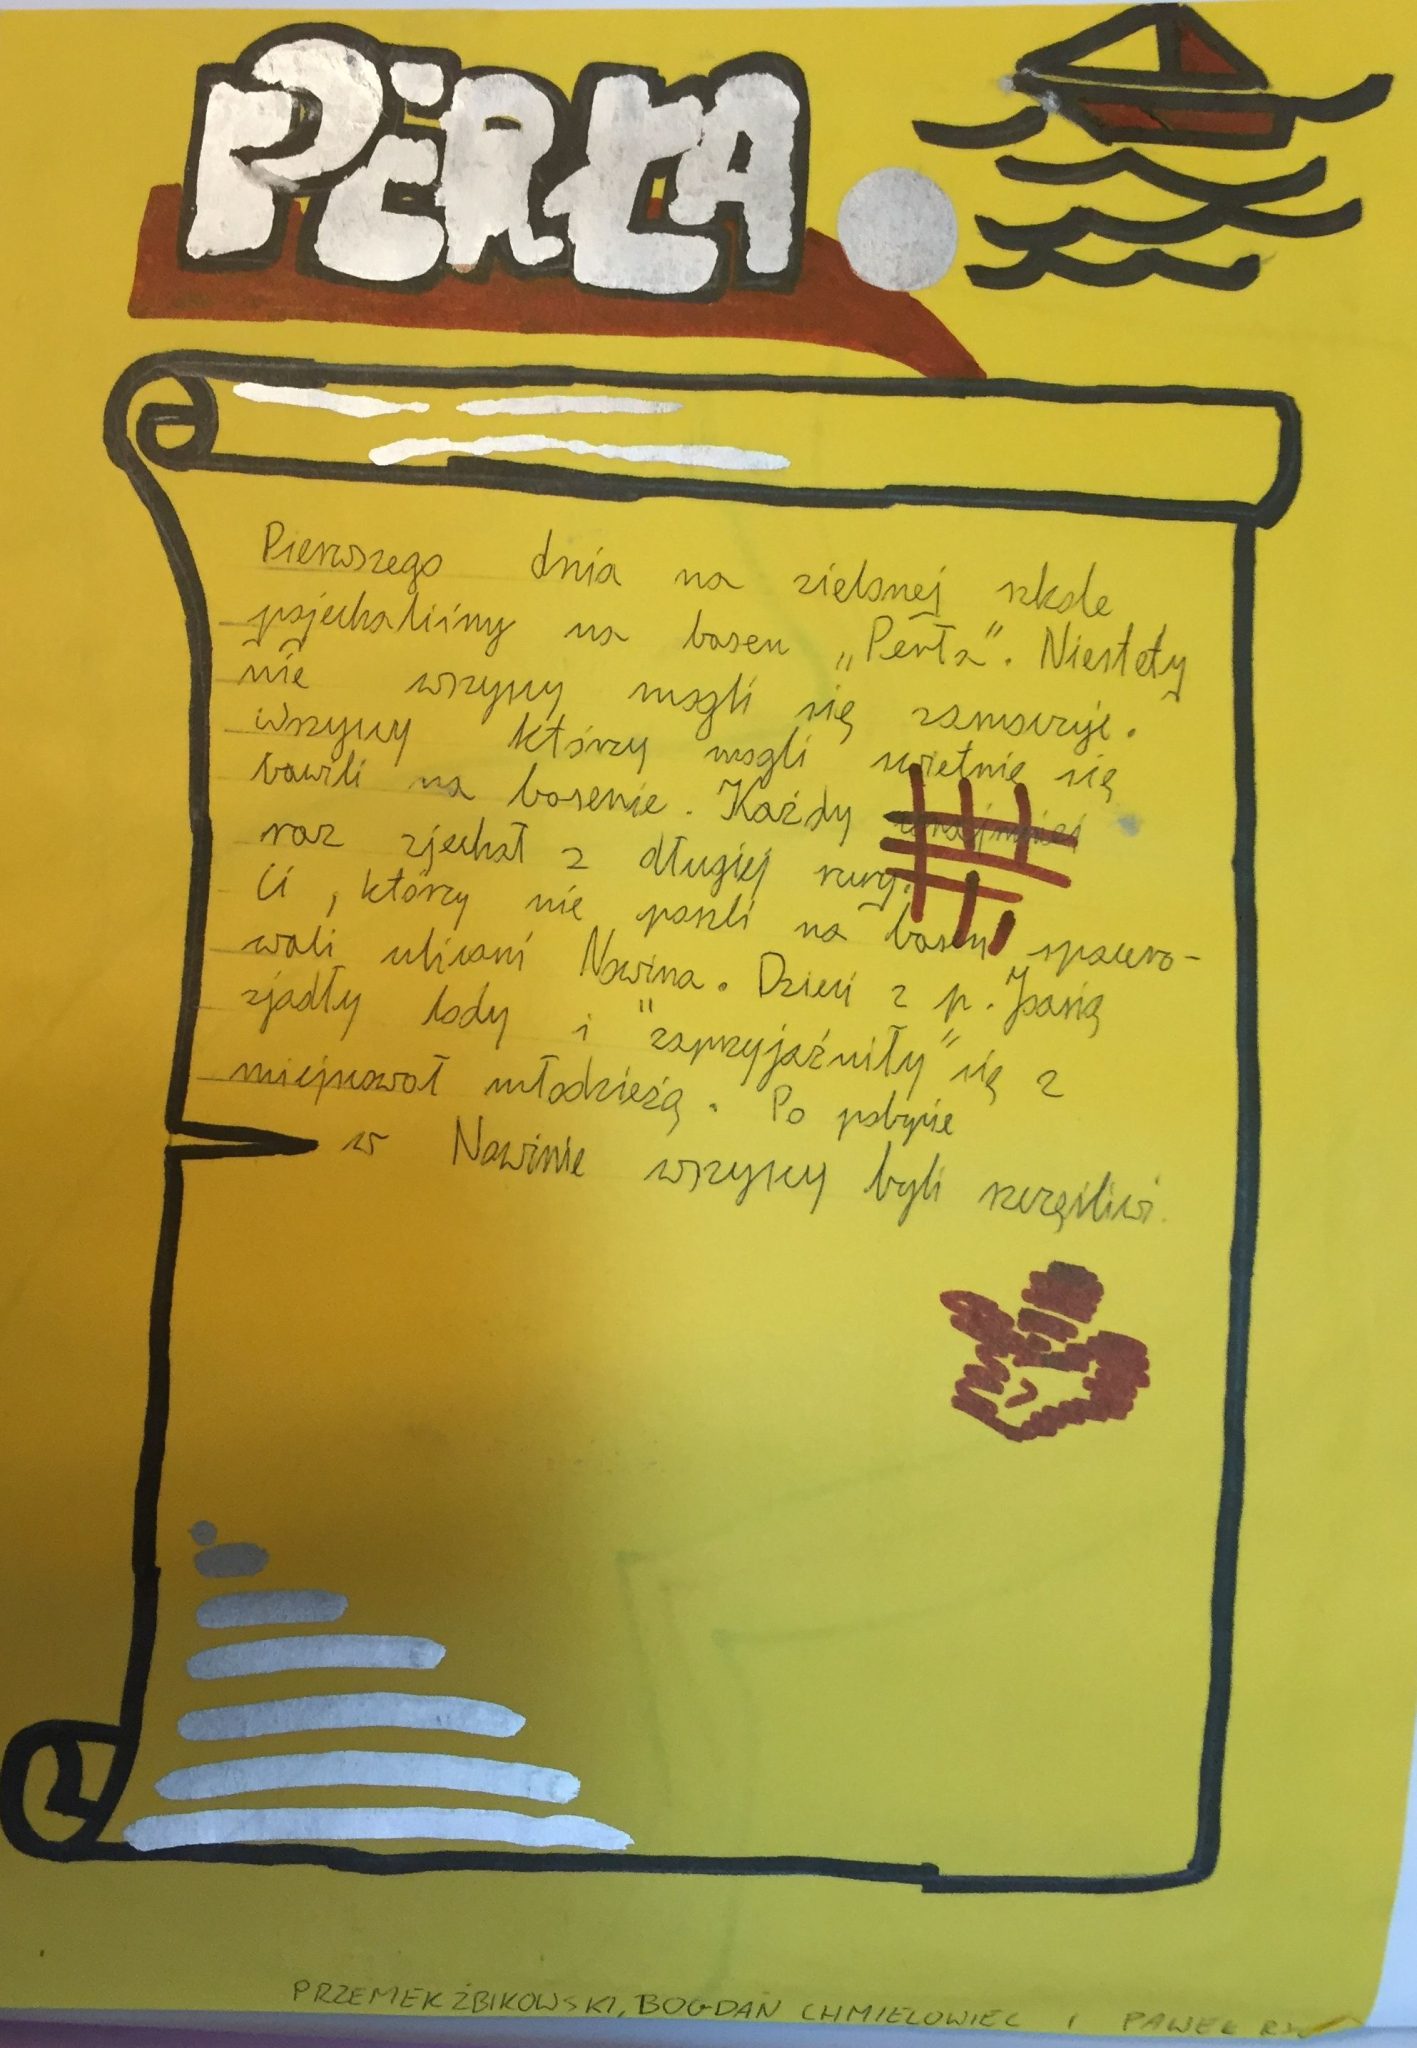 PERŁA
Pierwszego dnia na zielonej szkole
pojechaliśmy na basen „Perła”. Niestety
nie wszyscy mogli się zamoczyć.
Wszyscy którzy mogli świetnie się
bawili na basenie. Każdy
raz zjechał z długiej rury.
Ci, którzy nie poszli na basen spacero-
wali ulicami Nowina. Dzieci z p. Joasią
zjadły lody i "zaprzyjaźniły" się z
miejscową młodzieżą. Po pobycie
w Nowinie wszyscy byli szczęśliwi.
PRZEMEK ŻBIKOWSKI, BOGDAN CHMIELOWIEC I PAWEŁ